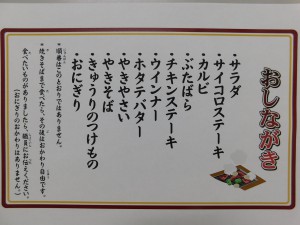 おしながき
・サラダ
・サイコロステーキ
・カルビ
・ぶたばら
・チキンステーキ
・ウインナー
・ホタテバター
・やきやさい
・やきそば
・きゅうりのつけもの
・おにぎり
・順番はこのとおりではありません。
・焼きそばまで食べたら、その後はおかわり自由です。
食べたいものがありましたら、職員にお伝えください。
(おにぎりのおかわりはありません。)